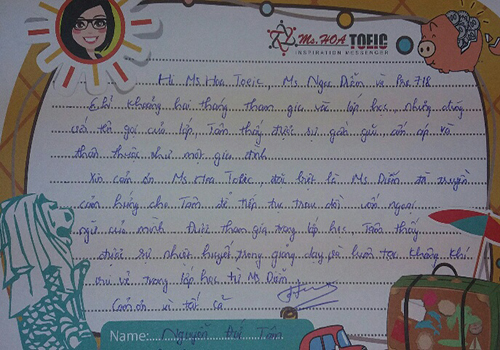 Ms.HOA TOEIC
INSPIRATION MESSENGER
Hi Ms.Hoa Toeic, Ms Ngọc Diễm và Pre 718
hai tháng tham gia vào lớp học, những
của lớp, Tâm thấy được sự gần gũi ấm áp và
thân thuộc như một gia đình
Xin cảm ơn Ms.Hoa Toeic, đặc biệt là Ms.Diễm đã truyền
cảm hứng cho Tâm để tiếp tục trau dồi vốn ngoại
ngữ của mình Được tham gia trong lớp học Tâm thấy
được sự nhiệt huyết trong giảng dạy và luôn tạo không khí
thú vị trong lớp học từ Ms Diễm
Cảm ơn vì tất cả
Name: Nguyễn Tâm